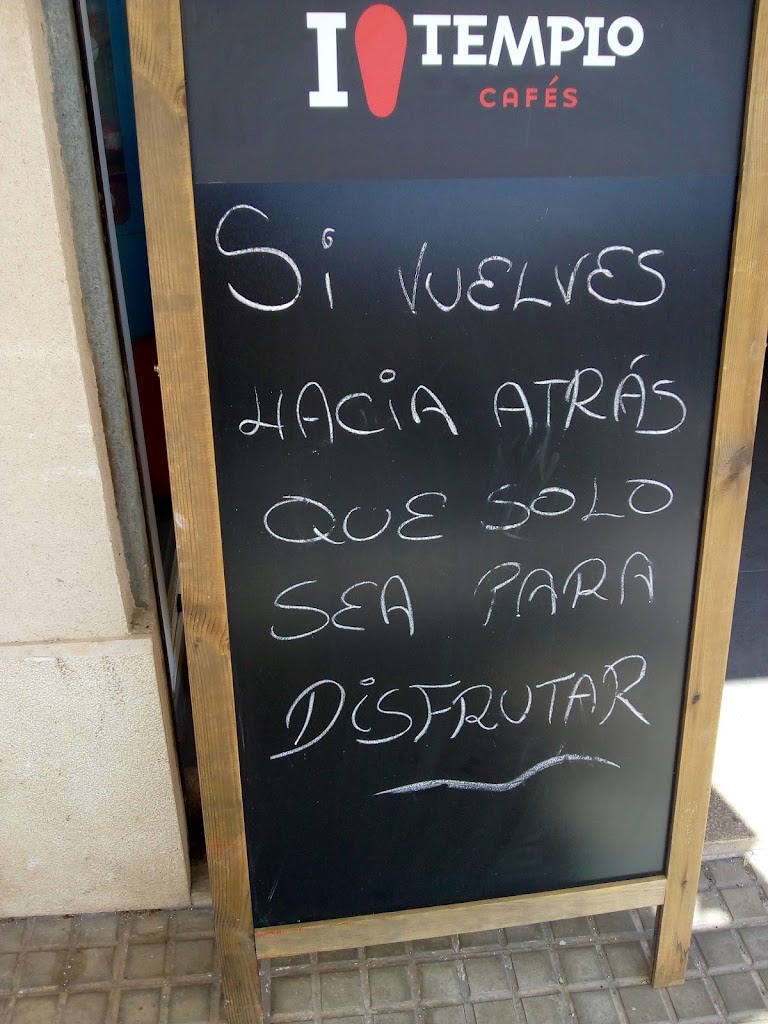 I TEMPLO
CAFÉS
Si VUELVES
HACiA ATRÁS
QUE SOLO
SEA PARA
DiSFRUTAR